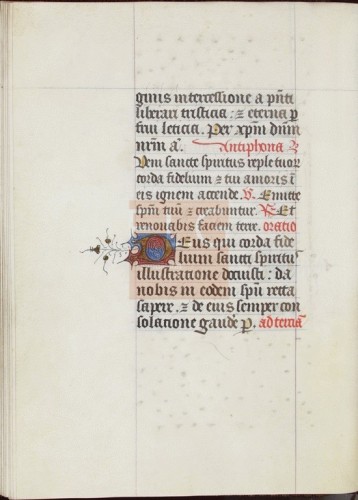 ginis intercessione a pn̄ti
liberari tristicia: ⁊ eterna ꝑ
frui leticia. Per xp̄m dn̄m
nr̄m a᷑. Antiphona
Veni sancte spiritus reple tuoꝝ
corda fidelium ⁊ tui amoris ī
eis ignem accende. ℣. Emitte
sp̄m tuū ⁊ creabuntur. ℟. Et
renouabis faciem terre. oratio
Deus qui corda fide
lium sancti spiritu᷒
illustratione docuisti: da
nobis in eodem sp̄u recta
sapere. ⁊ de eius semper con
solatione gaude᷑ p. ad terciā